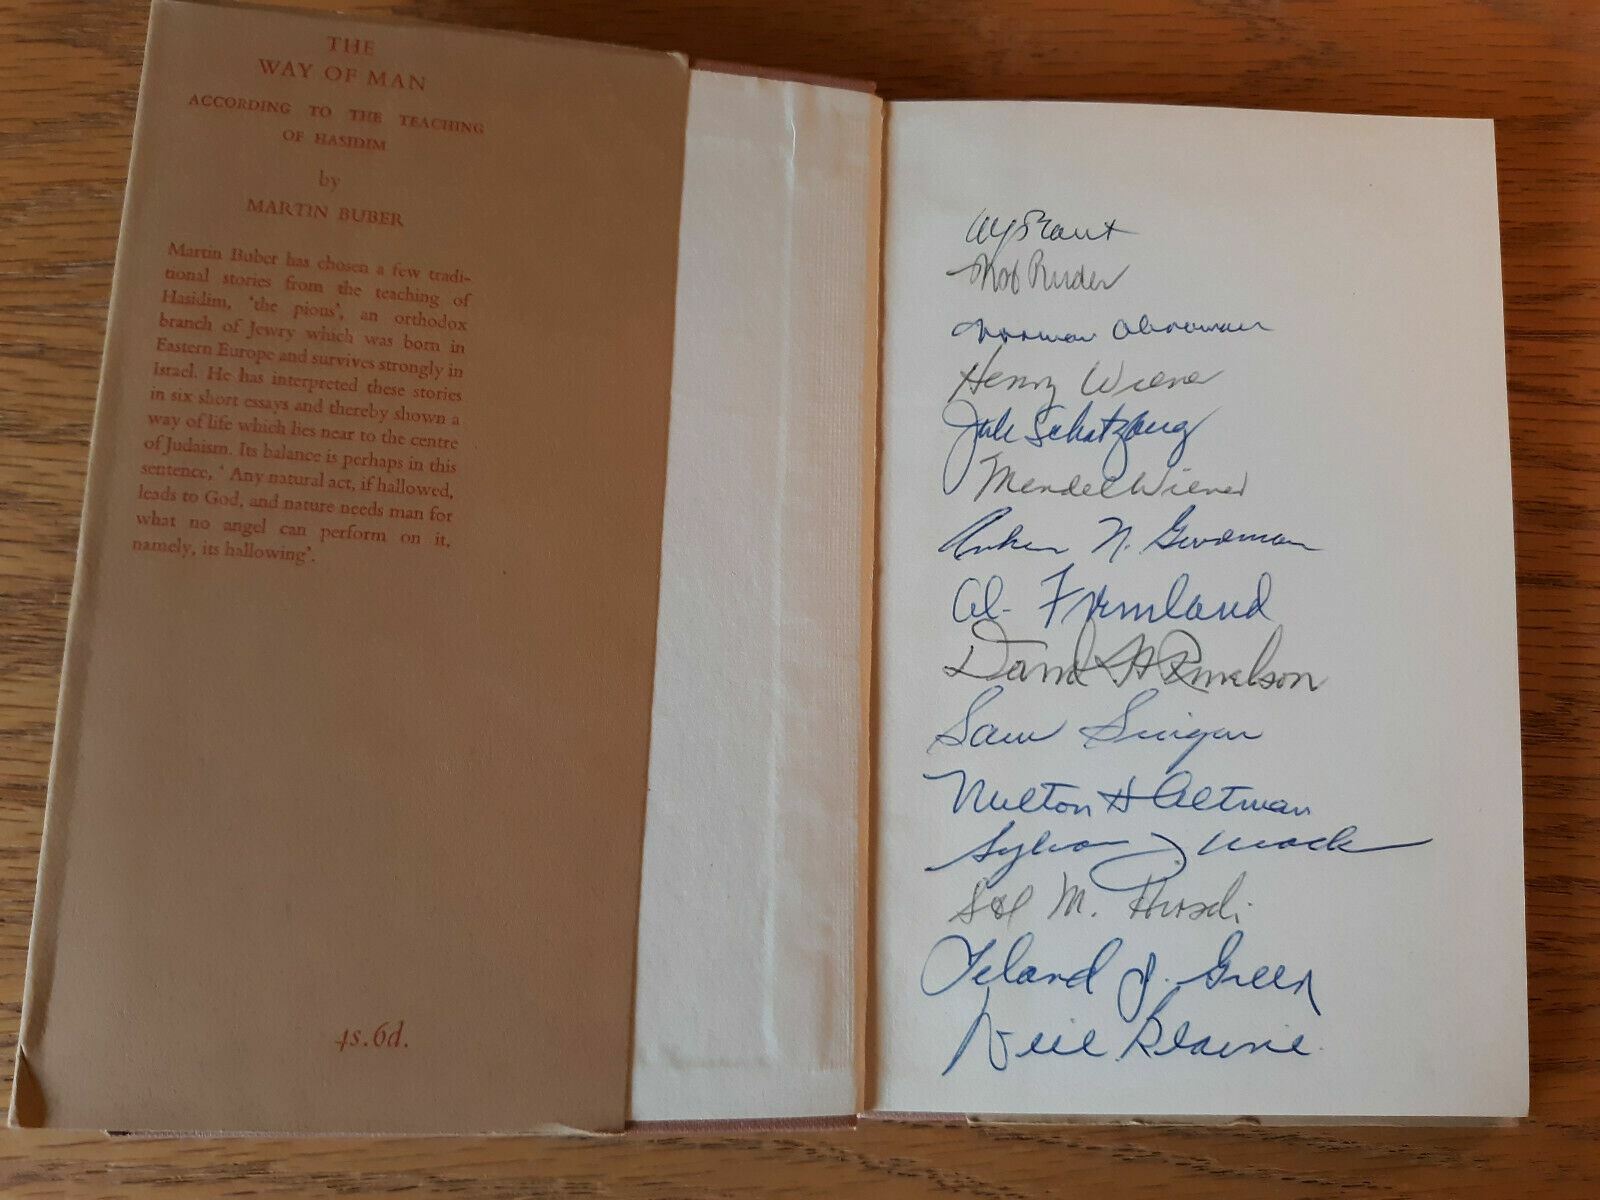 THE
WAY OF MAN
ACCORDING TO THE TEACHING
OF HASIDIM
by
MARTIN BUBER
Martin Buber has chosen a few tradi-
tional stories from the teaching of
Hasidim, 'the pious', an orthodox
branch of Jewry which was born in
Eastern Europe and survives strongly in
Israel. He has interpreted these stories
in six short essays and thereby shown a
way of life which lies near to the centre
of Judaism. Its balance is perhaps in this
sentence, ' Any natural act, if hallowed,
leads to God, and nature needs man for
what no angel can perform on it,
namely, its hallowing'.
4s. 6d.
Norman
Henry Wiener
Schatzberg
Mendel Wiener
N.
Al
David
Sam Singer
Milton H Altman
J. Mack
Sol M.
Leland J. Green
Neil